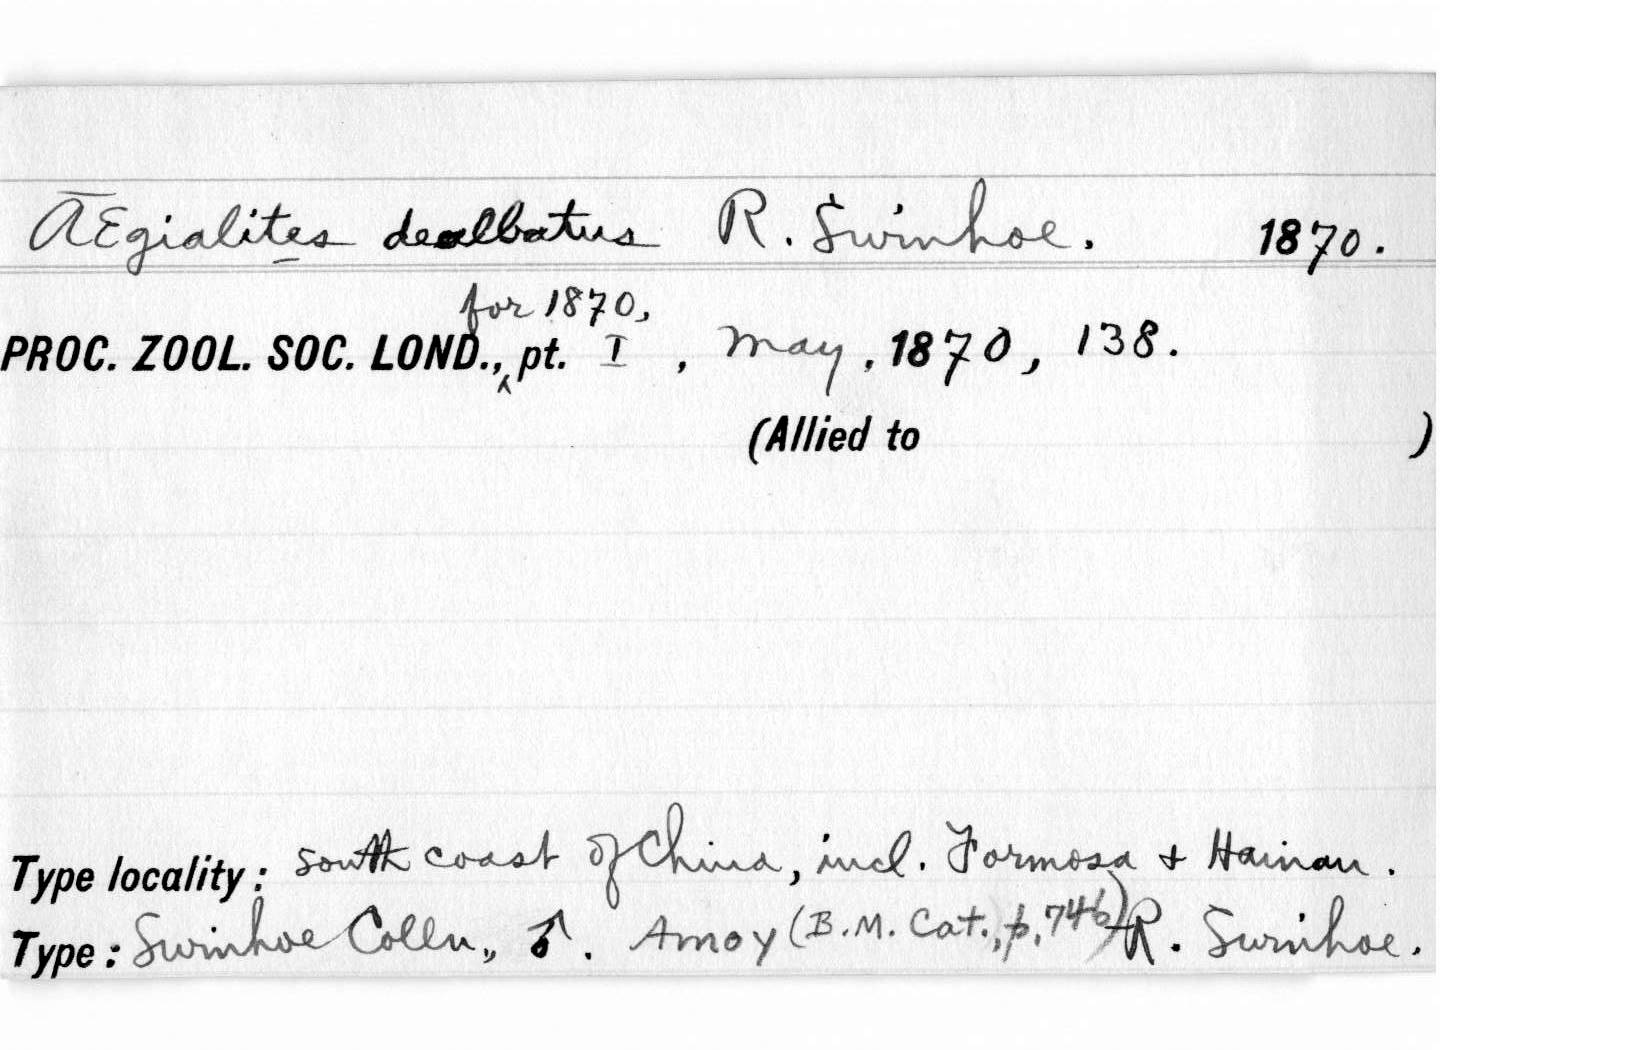 ÆEgialites dealbatus R. Swinhoe. 1870.
for 1870,
PROC. ZOOL. SOC. LOND., pt. I, May, 1870, 138.
(Allied to )
Type locality: south coast of China, incl. Formosa + Hainan.
Type: Swinhoe Colln., ♂. Amoy (B.M. Cat., p. 746) R. Swinhoe.